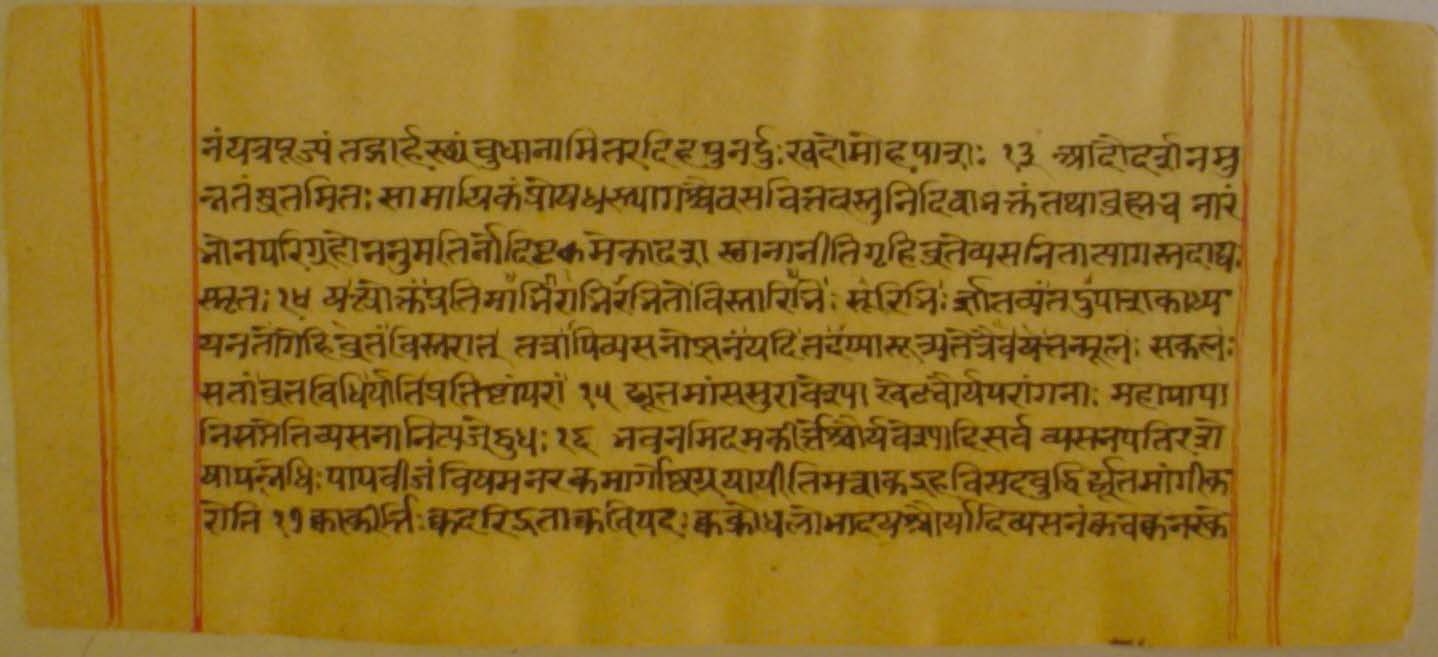 नं यत्र पूज्यं तद्गार्हस्थ्यं बुधानामितरदिह पुनर्दुःखदो मोहपाशः १३ आदौ दर्शनमु
न्नतं व्रतमितः सामायिकं प्रोषधस्त्यागश्चैव सचित्तवस्तुनि दिवाभक्तं तथा ब्रह्म च नारं
भो न परिग्रहो ननुमतिर्नोद्दिष्टमेकादश स्थानानीति गृहिव्रते व्यसनितात्यागस्तदाद्यः
स्मृतः १४ यत्प्रोक्तं प्रतिमाभिराभिरभितो विस्तारिभिः सूरिभिः ज्ञातव्यं तदुपासकाध्य
यनतो गेहिव्रतं विस्तरात् तत्रापि व्यसनोज्झनं यदि तदप्यासूत्र्यतेत्रैव यत्तन्मूलः सकलः
सतां व्रतविधिर्याति प्रतिष्टां परां १५ द्यूतमांससुरावेश्या खेटचौर्यपरांगनाः महापापा
नि सप्तेति व्यसनानि त्यजेद्बुधः १६ भवनमिदमकीर्त्तेश्चौर्यवेश्यादिसर्व व्यसनपतिरशे
षापन्निधिः पापबीजं विषमनरकमार्गेष्वग्रयायीति मत्वा क इह विसदबुद्धिर्द्यूतमांगीक
रोति १७ क्वाकीर्त्तिः क्व दरिद्रता क्व विपदः क्व क्रोधलोभादयश्चौर्यादिव्यसनं क्व च क्व नरके